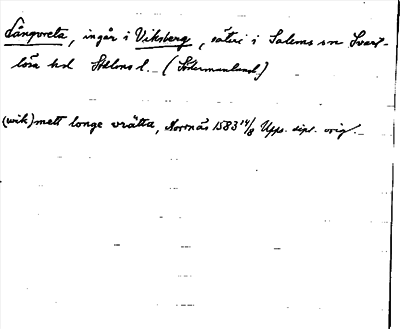 Långvreta, ingår i Viksberg, säteri i Salems sn Svart-
lösa hd Sthlms l. (Södermanland)
(wik) mett longe vrätta, Norrnäs 1583 14/8 Upps. dipl. orig.